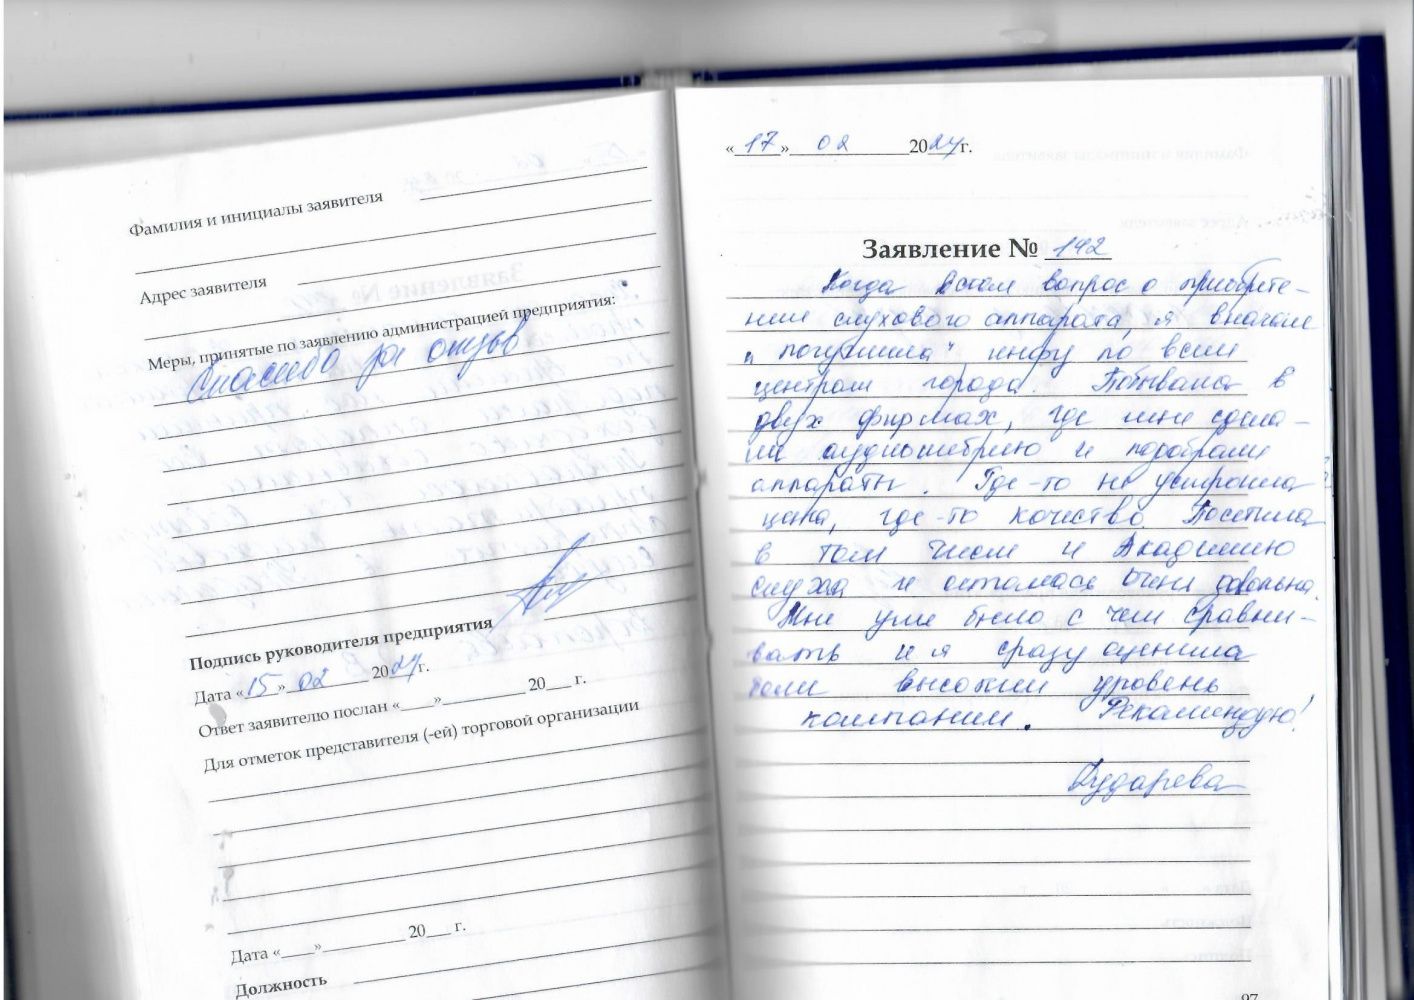 Фамилия и инициалы заявителя
Адрес заявителя
Меры, принятые по заявлению администрацией предприятия:
Спасибо за отзыв
Подпись руководителя предприятия
Дата «15» 02 2024г.
Ответ заявителю послан «___»__________ 20___ г.
Для отметок представителя (-ей) торговой организации
Дата «___»__________ 20___ г.
Должность
«17» 02 2024г.
Заявление № 142
Когда встал вопрос о приобрете-
нии слухового аппарата, я вначале
"погуглила" инфу по всем
центрам города. Побывала в
двух фирмах, где мне сдела-
ли аудиометрию и подобрали
аппараты. Где-то не устроила
цена, где-то качество. Посетила
в том числе и Академию
слуха и осталась очень довольна.
Мне уже было с чем сравни-
вать и я сразу оценила
высокий уровень
компании. Рекомендую!
Дударева
97